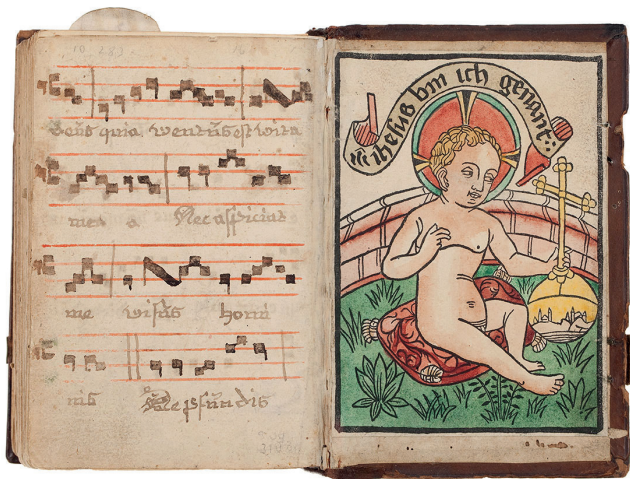 deus quia ventus est vita
mea a Nec aspiciat
me visus homi
nis De pfundis
ihesus bin ich genant: